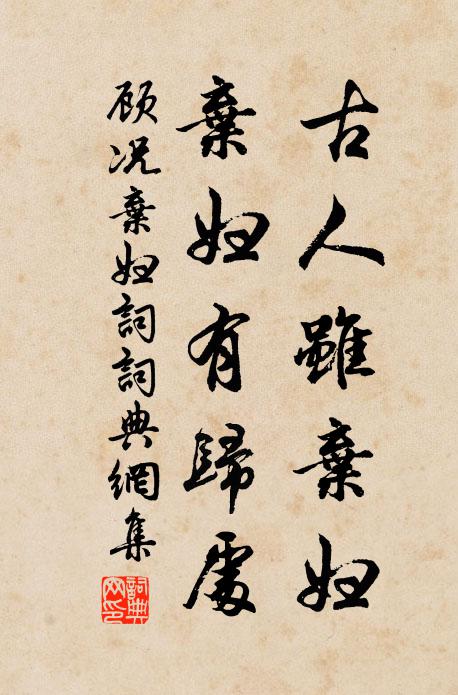 古人雖棄妇
棄妇有歸處
顾况棄妇詞詞典網集
詞典网印